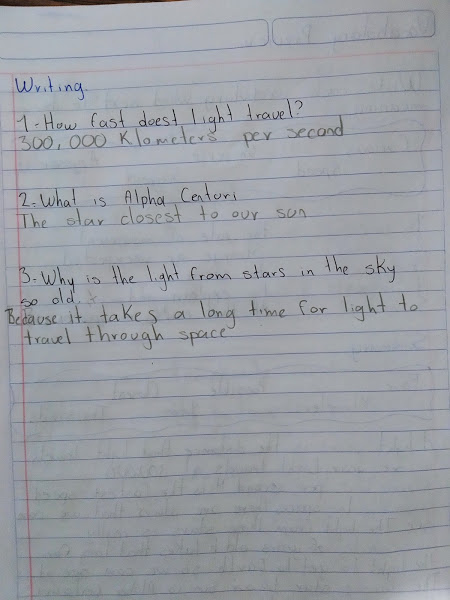 Writing.
1-How fast doest light travel?
300,000 Klometers per second
2-What is Alpha Centuri
The star closest to our sun
3-Why is the light from stars in the sky
so old.
Because it takes a long time for light to
travel through space